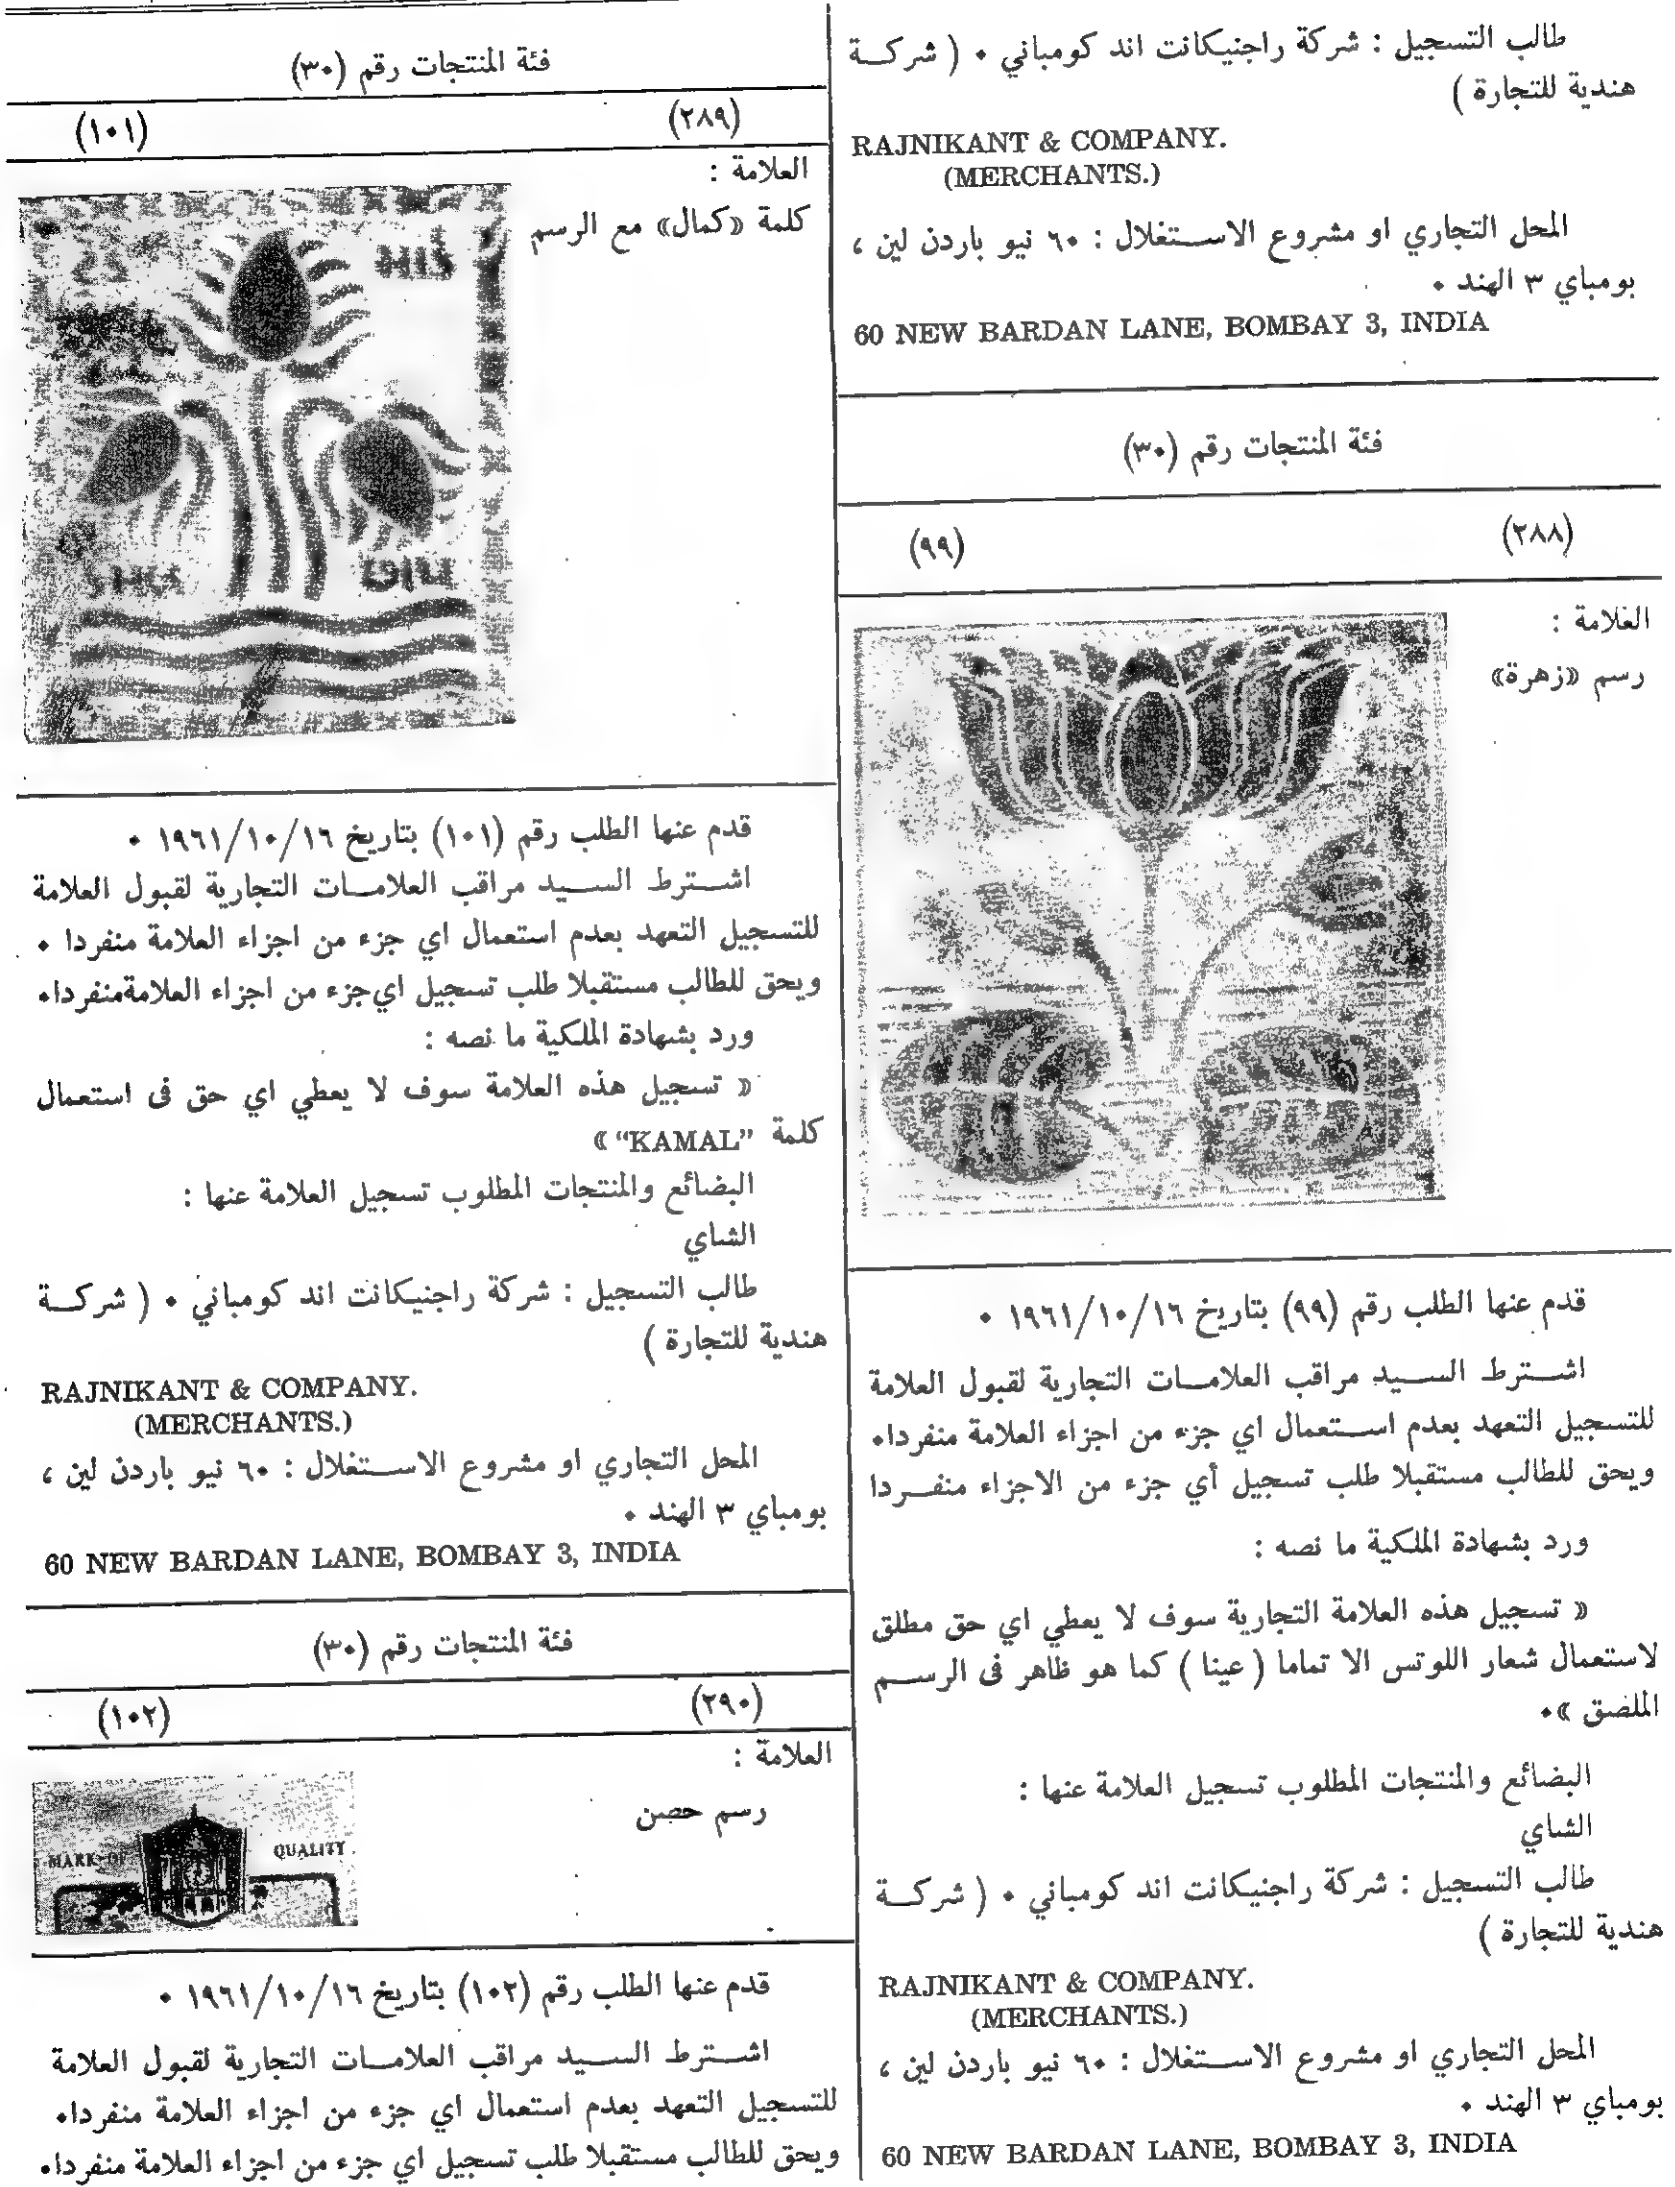 طالب التسجيل : شركة راجنيكانت اند كومباني ٠ ( شركــة
هندية للتجارة )
RAJNIKANT & COMPANY.
(MERCHANTS.)
المحل التجاري او مشروع الاســتغلال : ٦٠ نيو باردن لين ،
بومباي ٣ الهند ٠
60 NEW BARDAN LANE, BOMBAY 3, INDIA
فئة المنتجات رقم (٣٠)
(٢٨٨) (٩٩)
العلامة :
رسم «زهرة»
قدم عنها الطلب رقم (٩٩) بتاريخ ١٩٦١/١٠/١٦ ٠
اشــترط الســيد مراقب العلامــات التجارية لقبول العلامة
للتسجيل التعهد بعدم اســتعمال اي جزء من اجزاء العلامة منفردا٠
ويحق للطالب مستقبلا طلب تسجيل أي جزء من الاجزاء منفــردا
ورد بشهادة الملكية ما نصه :
« تسجيل هذه العلامة التجارية سوف لا يعطي اي حق مطلق
لاستعمال شعار اللوتس الا تماما ( عينا ) كما هو ظاهر فى الرســم
الملصق »٠
البضائع والمنتجات المطلوب تسجيل العلامة عنها :
الشاي
طالب التسجيل : شركة راجنيكانت اند كومباني ٠ ( شركــة
هندية للتجارة )
RAJNIKANT & COMPANY.
(MERCHANTS.)
المحل التجاري او مشروع الاســتغلال : ٦٠ نيو باردن لين ،
بومباي ٣ الهند ٠
60 NEW BARDAN LANE, BOMBAY 3, INDIA
فئة المنتجات رقم (٣٠)
(٢٨٩) (١٠١)
العلامة :
كلمة «كمال» مع الرسم
قدم عنها الطلب رقم (١٠١) بتاريخ ١٩٦١/١٠/١٦ ٠
اشــترط الســيد مراقب العلامــات التجارية لقبول العلامة
للتسجيل التعهد بعدم استعمال اي جزء من اجزاء العلامة منفردا ٠
ويحق للطالب مستقبلا طلب تسجيل اي جزء من اجزاء العلامة منفردا٠
ورد بشهادة الملكية ما نصه :
« تسجيل هذه العلامة سوف لا يعطي اي حق فى استعمال
كلمة “KAMAL” »
البضائع والمنتجات المطلوب تسجيل العلامة عنها :
الشاي
طالب التسجيل : شركة راجنيكانت اند كومباني ٠ ( شركــة
هندية للتجارة )
RAJNIKANT & COMPANY.
(MERCHANTS.)
المحل التجاري او مشروع الاســتغلال : ٦٠ نيو باردن لين ،
بومباي ٣ الهند ٠
60 NEW BARDAN LANE, BOMBAY 3, INDIA
فئة المنتجات رقم (٣٠)
(٢٩٠) (١٠٢)
العلامة :
رسم حصن
MARK OF QUALITY
قدم عنها الطلب رقم (١٠٢) بتاريخ ١٩٦١/١٠/١٦ ٠
اشــترط الســيد مراقب العلامــات التجارية لقبول العلامة
للتسجيل التعهد بعدم استعمال اي جزء من اجزاء العلامة منفردا٠
ويحق للطالب مستقبلا طلب تسجيل اي جزء من اجزاء العلامة منفردا٠